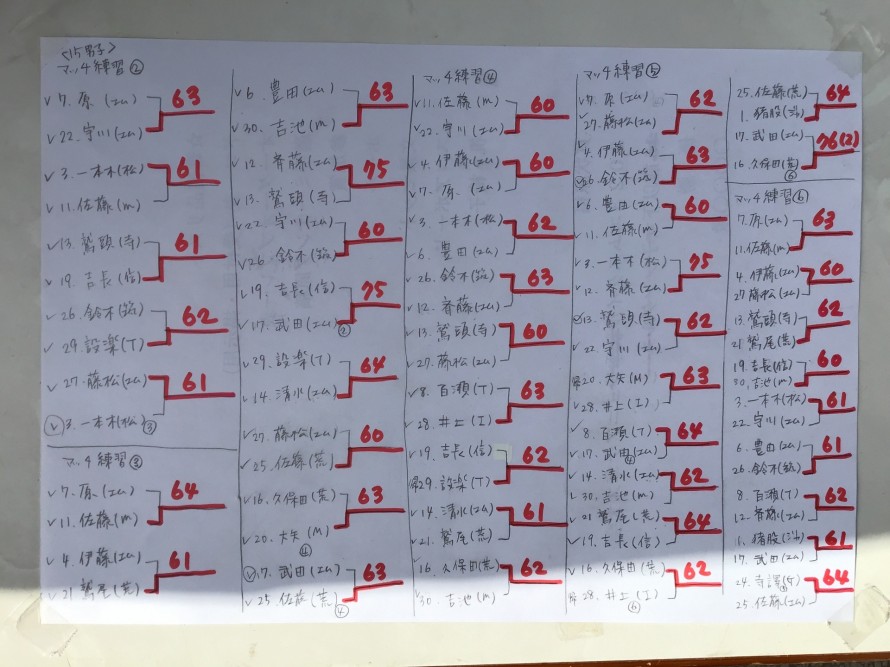 <15男子>
マッチ練習②
✓7. 原 (エム) 63
✓22. 宇川 (エム)
✓3. 一本木 (松) 61
✓11. 佐藤 (m)
✓13. 鷲頭 (寺) 61
✓19. 吉長 (信)
✓26. 鈴木 (筑) 62
✓29. 設楽 (T)
✓27. 藤松 (エム) 61
✓3. 一本木 (松) ③
マッチ練習③
✓7. 原 (エム) 64
✓11. 佐藤 (m)
✓4. 伊藤 (エム) 61
✓21 鷲尾 (荒)
✓6. 豊田 (エム) 63
✓30. 吉池 (m)
✓12. 斉藤 (エム) 75
✓13. 鷲頭 (寺)
✓22. 宇川 (エム) 60
✓26. 鈴木 (筑)
✓19. 吉長 (信) 75
✓17. 武田 (エム) ②
✓29. 設楽 (T) 64
✓14. 清水 (エム)
✓27. 藤松 (エム) 60
✓25. 佐藤 (荒)
✓16. 久保田 (荒) 63
✓20. 大矢 (M) ④
✓17. 武田 (エム) 63
✓25. 佐藤 (荒) ④
マッチ練習④
✓11. 佐藤 (m) 60
✓22. 宇川 (エム)
✓4. 伊藤 (エム) 60
✓7. 原 (エム)
✓3. 一本木 (松) 62
✓6. 豊田 (エム)
✓26. 鈴木 (筑) 63
✓12. 斉藤 (エム)
✓13. 鷲頭 (寺) 60
✓27. 藤松 (エム)
✓8. 百瀬 (T) 63
✓28. 井上 (I)
✓19. 吉長 (信) 62
29. 設楽 (T)
✓14. 清水 (エム) 61
✓21. 鷲尾 (荒)
✓16. 久保田 (荒) 62
✓30. 吉池 (m)
マッチ練習⑤
✓7. 原 (エム) 62
✓27. 藤松 (エム)
✓4. 伊藤 (エム) 63
✓26 鈴木 (筑)
✓6. 豊田 (エム) 60
✓11. 佐藤 (m)
✓3. 一本木 (松) 75
✓12. 斉藤 (エム)
✓13. 鷲頭 (寺) 62
✓22. 宇川 (エム)
20. 大矢 (M) 63
✓28. 井上 (I)
✓8. 百瀬 (T) 64
✓17. 武田 (エム)
✓14. 清水 (エム) 62
✓30. 吉池 (m)
✓21 鷲尾 (荒) 64
✓19. 吉長 (信)
✓16. 久保田 (荒) 62
28. 井上 (I) ⑥
25. 佐藤 (荒) 64
1. 猪股
17. 武田 (エム) 76(2)
16. 久保田 (荒) ⑥
マッチ練習⑥
7. 原 (エム) 63
11. 佐藤 (m)
4. 伊藤 (エム) 60
27 藤松 (エム)
13. 鷲頭 (寺) 62
21 鷲尾 (荒)
19. 吉長 (信) 60
30. 吉池 (m)
3. 一本木 (松) 61
22. 宇川 (エム)
6. 豊田 (エム) 61
26. 鈴木 (筑)
8. 百瀬 (T) 62
12. 斉藤 (エム)
1. 猪股 61
17. 武田 (エム)
24. 寺澤 64
25. 佐藤 (エム)